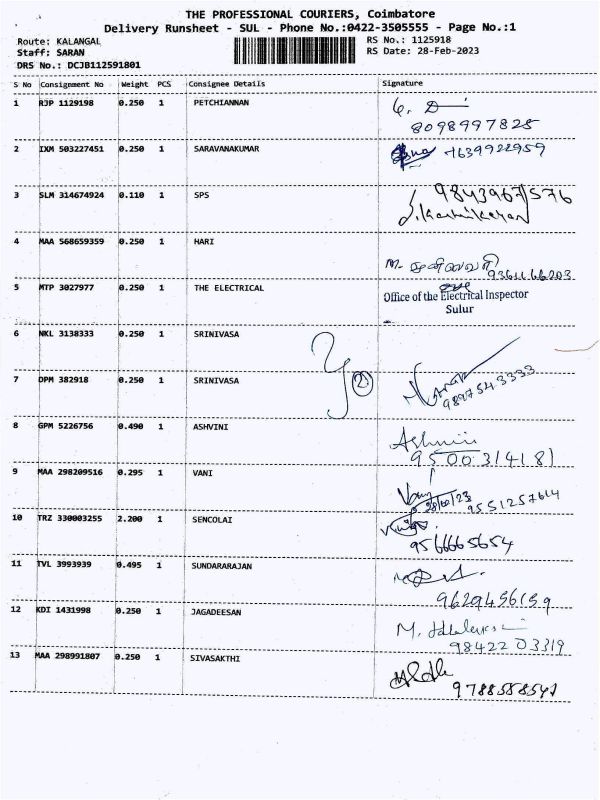 THE PROFESSIONAL COURIERS, Coimbatore
Delivery Runsheet - SUL - Phone No.:0422-3505555 - Page No.:1
Route: KALANGAL
RS No.: 1125918
Staff: SARAN
RS Date: 28-Feb-2023
DRS No.: DCJB112591801
S No Consignment No Weight PCS Consignee Details Signature
1 RJP 1129198 0.250 1 PETCHIANNAN
8098997825
2 IXM 503227451 0.250 1 SARAVANAKUMAR 7639922959
3 SLM 314674924 0.110 1 SPS 9843967576
4 MAA 568659359 0.250 1 HARI
9361166203
5 MTP 3027977 0.250 1 THE ELECTRICAL
Office of the Electrical Inspector
Sulur
6 NKL 3138333 0.250 1 SRINIVASA
7 OPM 382918 0.250 1 SRINIVASA 2
9897543333
8 GPM 5226756 0.490 1 ASHVINI
Ashvini
9500314181
9 MAA 298209516 0.295 1 VANI
Vani
28/02/23 9551257614
10 TRZ 330003255 2.200 1 SENCOLAI
9566665654
11 TVL 3993939 0.495 1 SUNDARARAJAN
9629456159
12 KDI 1431998 0.250 1 JAGADEESAN
9842203319
13 MAA 298991807 0.250 1 SIVASAKTHI
9788558547